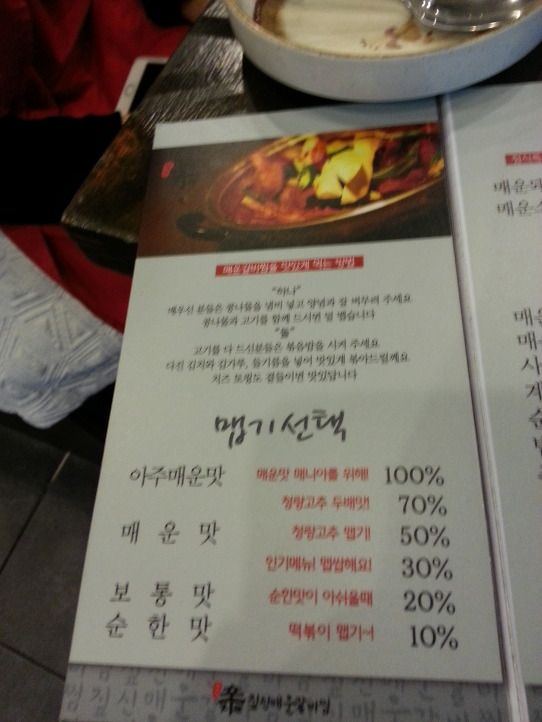 매운갈비찜을 맛있게 먹는 방법
"하나"
매우신 분들은 콩나물을 냄비 넣고 양념과 잘 버무려 주세요
콩나물과 고기를 함께 드시면 덜 맵습니다
"둘"
고기를 다 드신분들은 볶음밥을 시켜 주세요
다진 김치와 김가루, 들기름을 넣어 맛있게 볶아드릴께요
치즈 토핑도 곁들이면 맛있답니다
맵기선택
아주매운맛 매운맛 매니아를 위해!! 100%
청량고추 두배맛!! 70%
매운맛 청량고추 맵기! 50%
인기메뉴! 맵쌉해요! 30%
보통맛 순한맛이 아쉬울때 20%
순한맛 떡볶이 맵기~! 10%
매운
매운